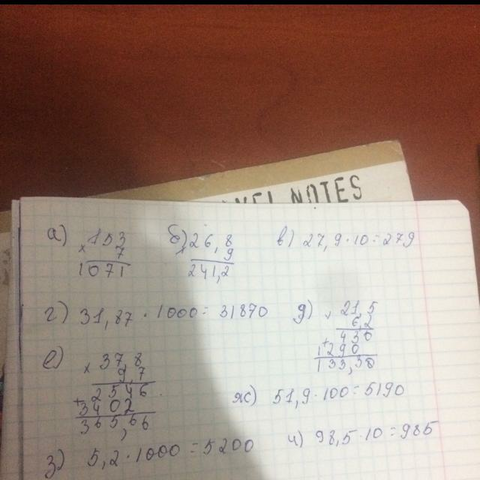 NOTES
а) 153 б) 26,8 в) 27,9·10=279
× 7 × 9
1071 241,2
г) 31,87·1000=31870 д) 21,5
× 6,2
430
+ 1290
133,30
е) 37,8
× 9,7
2546
+ 3402
365,66
ж) 51,9·100=5190
з) 5,2·1000=5200 и) 98,5·10=985